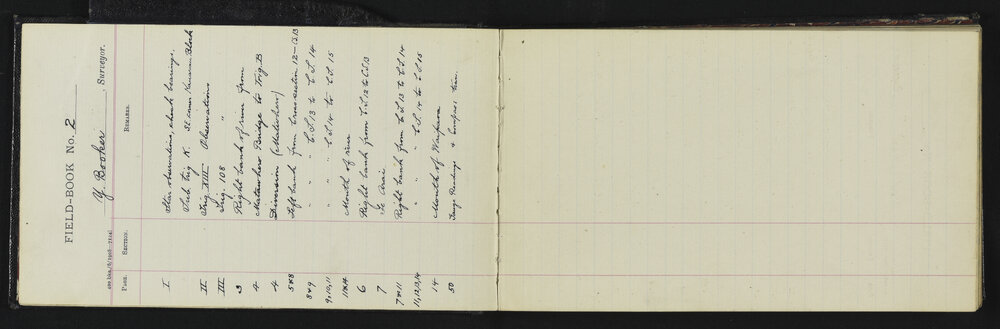 FIELD-BOOK No. 2
Y. Booker, Surveyor.
Page. Section. Remarks.
I Star observations, check bearings.
Sub trig K. SE corner Block
II Trig XIII Observations
III Trig. 108 "
3 Right bank of river from
4 Matawhero Bridge to Trig. B
4 Diversion (Matawhero)
5 & 8 Left bank from Cross section 12–CS 13
8 & 9 " " C.S 13 to C.S. 14
9, 10, 11 " " C.S 14 to C.S. 15
11 & 14 Mouth of river
6 Right bank from C.S. 12 to C.S 13
7 Te Arai
7 & 11 Right bank from C.S 13 to C.S 14
11, 12, 13, 14 " " C.S. 14 to C.S 15
14 Mouth of Waipaoa
50 Gauge Readings &